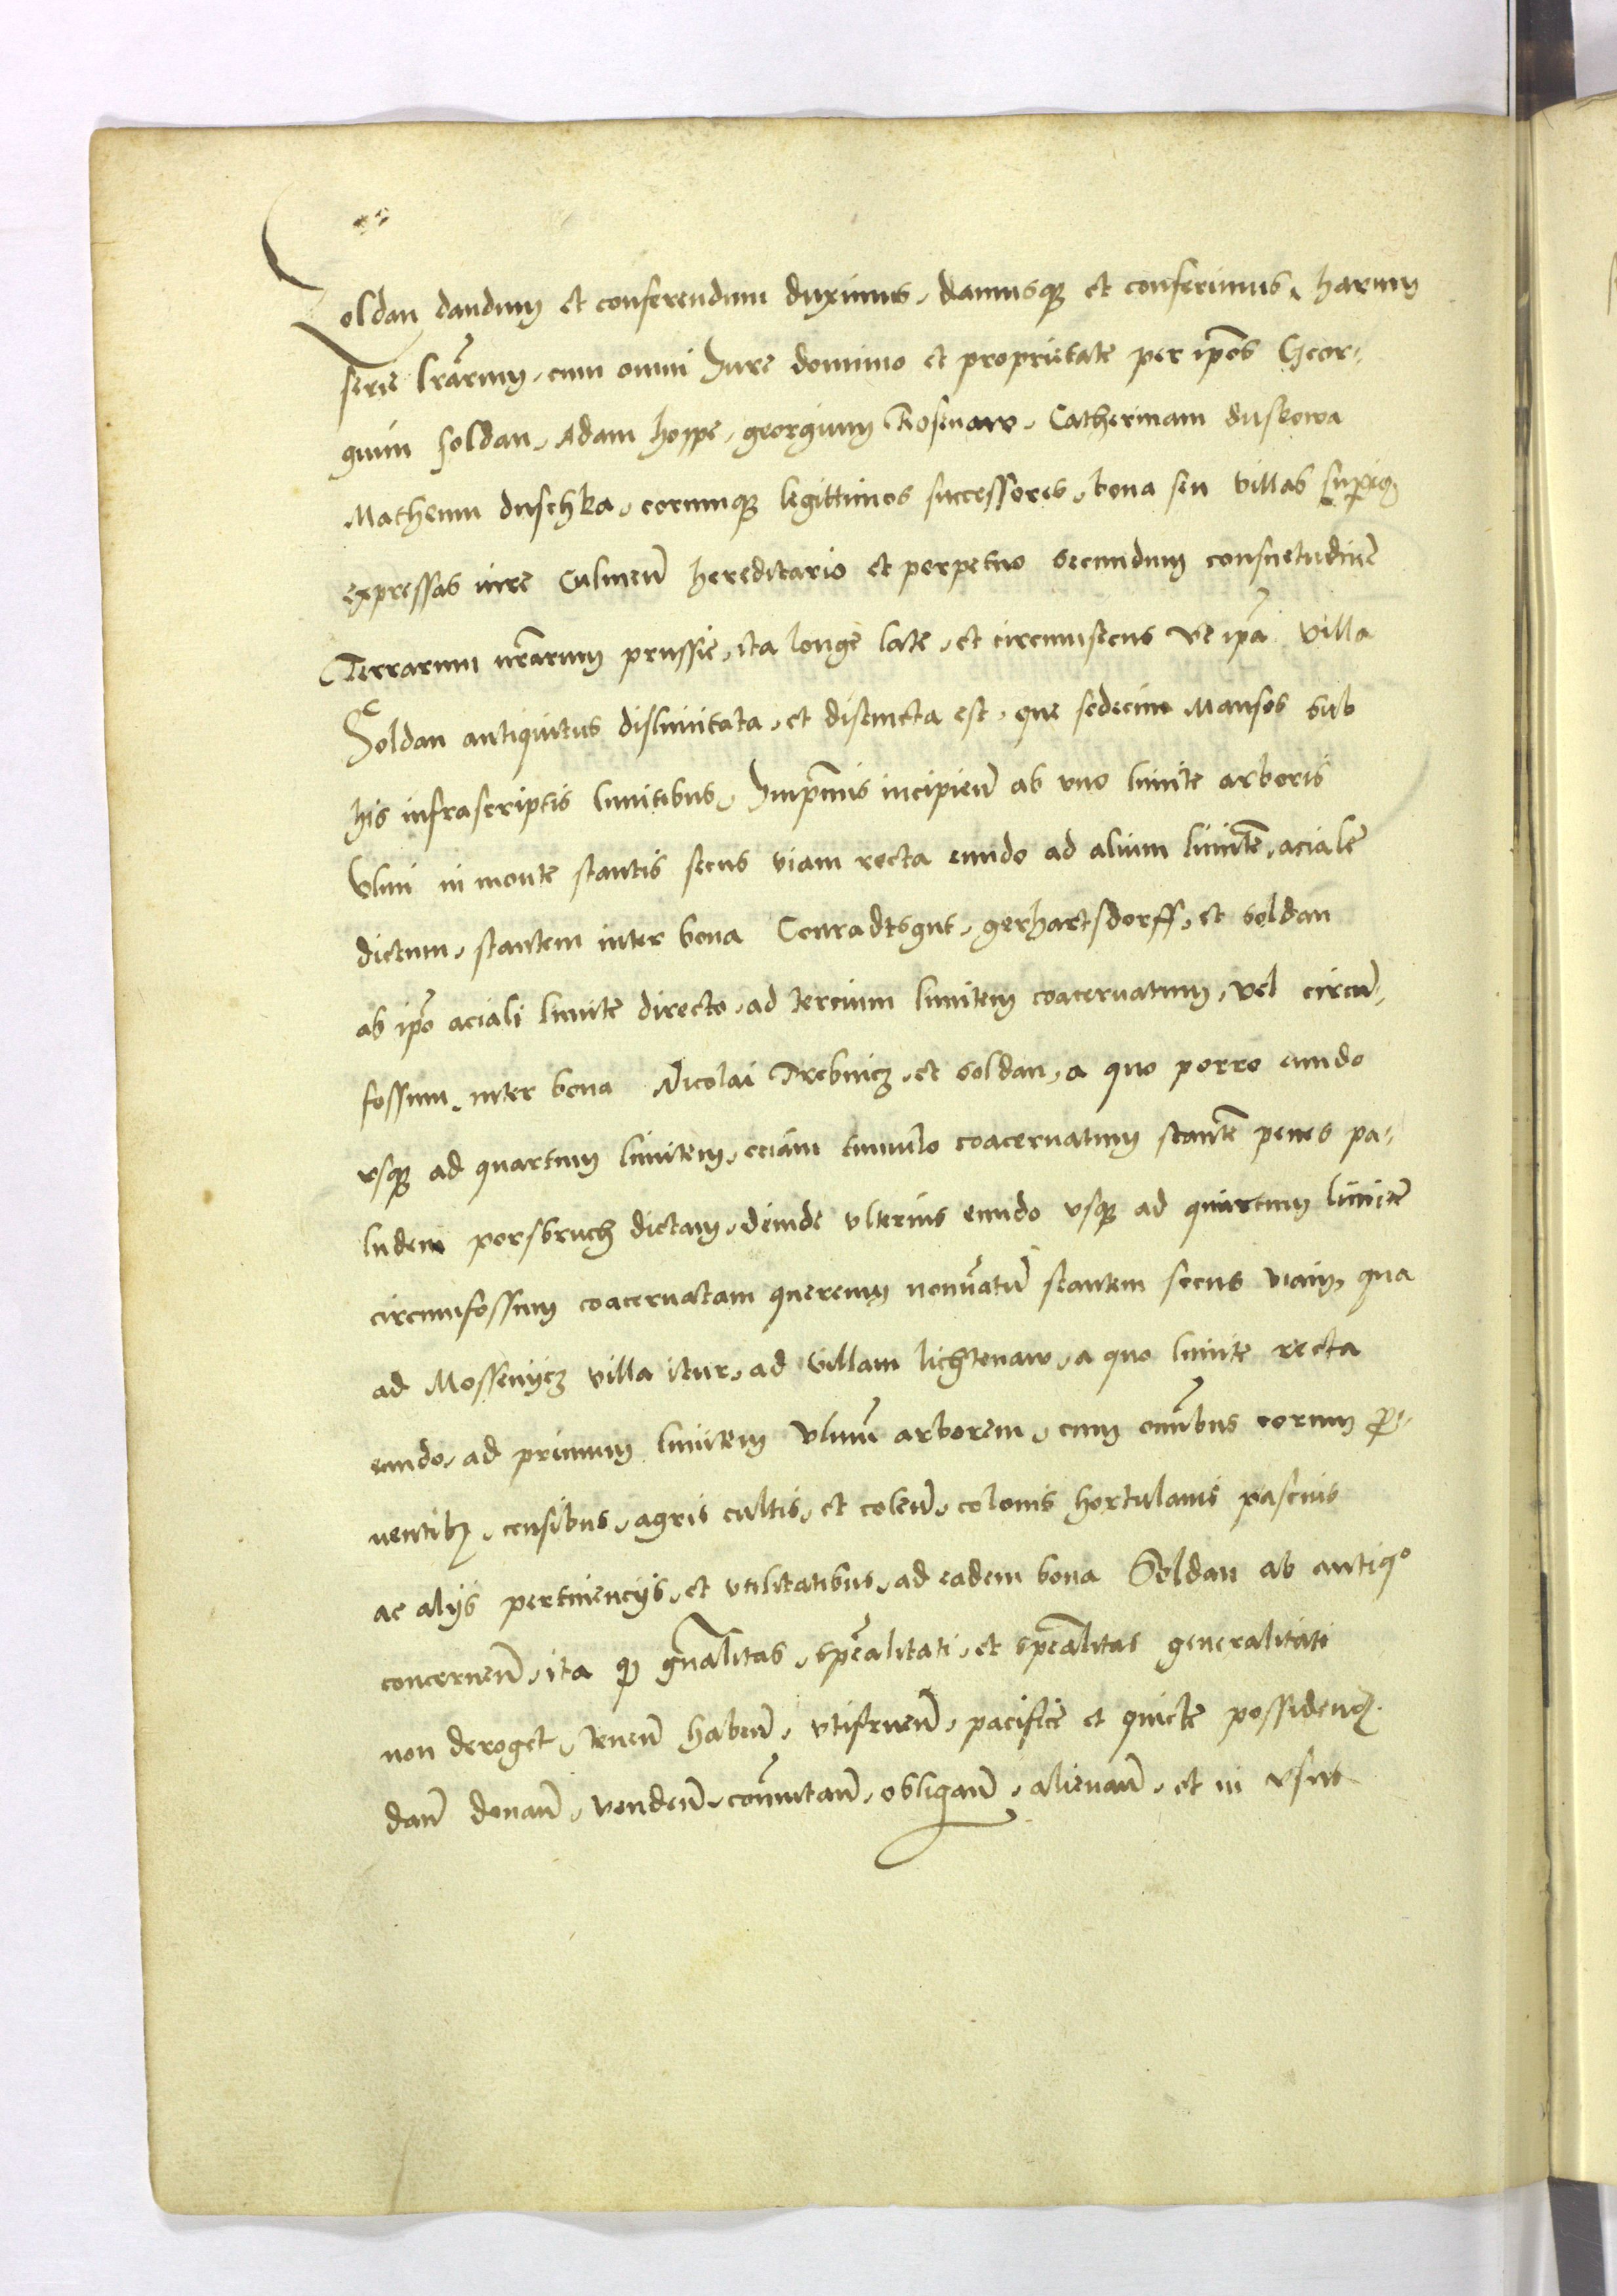 Soldan dandum et conferendum duximus, damusq; et conferimus, harum
serie lr̃arum, cum omni Jure dominio et proprietate per ip̃os Geor-
gium soldan, Adam hoppe, georgium Rosenaw, Catherinam duskowa
Matheum duschka, eorumq; legittimos successores, bona seu villas
expressas iure Culmeñ hereditario et perpetuo secundum consuetudinẽ
Terrarum nr̃arum prussie, ita longe late, et circumsecus vt ip̃a villa
Soldan antiquitus dislimitata, et distincta est, que sedecim Mansos sub
his infrascriptis limitibus, Inprimis incipieñ ab vno limite arboris
Vlmi in monte stantis secus viam recta eundo ad alium limitẽ, acialẽ
dictum, stantem inter bona Conradtsgut, gerhartsdorff, et soldan
ab ip̃o aciali limite directo, ad tercium limitem coaceruatum, vel circũ-
fossum, inter bona Nicolai Trebnicz, et soldan, a quo porro eundo
vsq; ad quartum limitem, eciam tumulo coaceruatum stantẽ penes pa-
ludem porsbruch dictam, deinde vlterius eundo vsq; ad quintum limitẽ
circumfossum coaceruatam quercum nomĩatũ stantem secus viam, qua
ad Mossenycz villa itur, ad villam lichtenaw, a quo limite recta
eundo, ad primum limitem Vlmũ arborem, cum omĩbus eorum ꝓ-
uentibꝫ, censibus, agris cultis, et coleñ, colonis hortulanis pascuis
ac alijs pertinencijs, et vtilitatibus, ad eadem bona Soldan ab antiqᵒ
concerneñ, ita ꝙ gñalitas, spẽalitati, et spẽalitas generalitati
non deroget, teneñ habeñ, vtifrueñ, pacifice et quiete possidend.
dañ donañ, vendeñ, com̃utañ, obligañ, alienañ, et in vsus